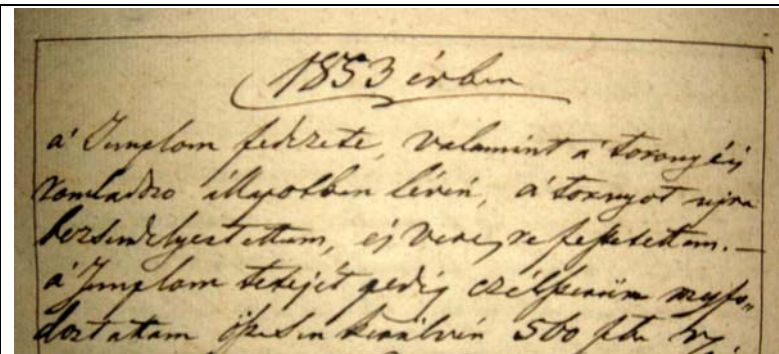 1853 évben
a' Templom fedezete, valamint a' torony is
romladozo állapotban lévén, a' tornyot ujra
bezsendelyeztettem, és veresre festettem. —
a' Templom tetejét pedig czélszerüen megfo„
doztattam öszvesen kerülvén 500 ftr